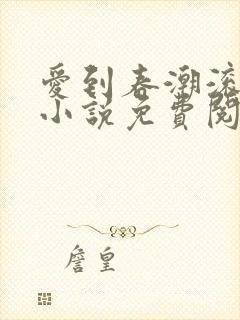 愛到春潮滾
小說免費閱
詹皇